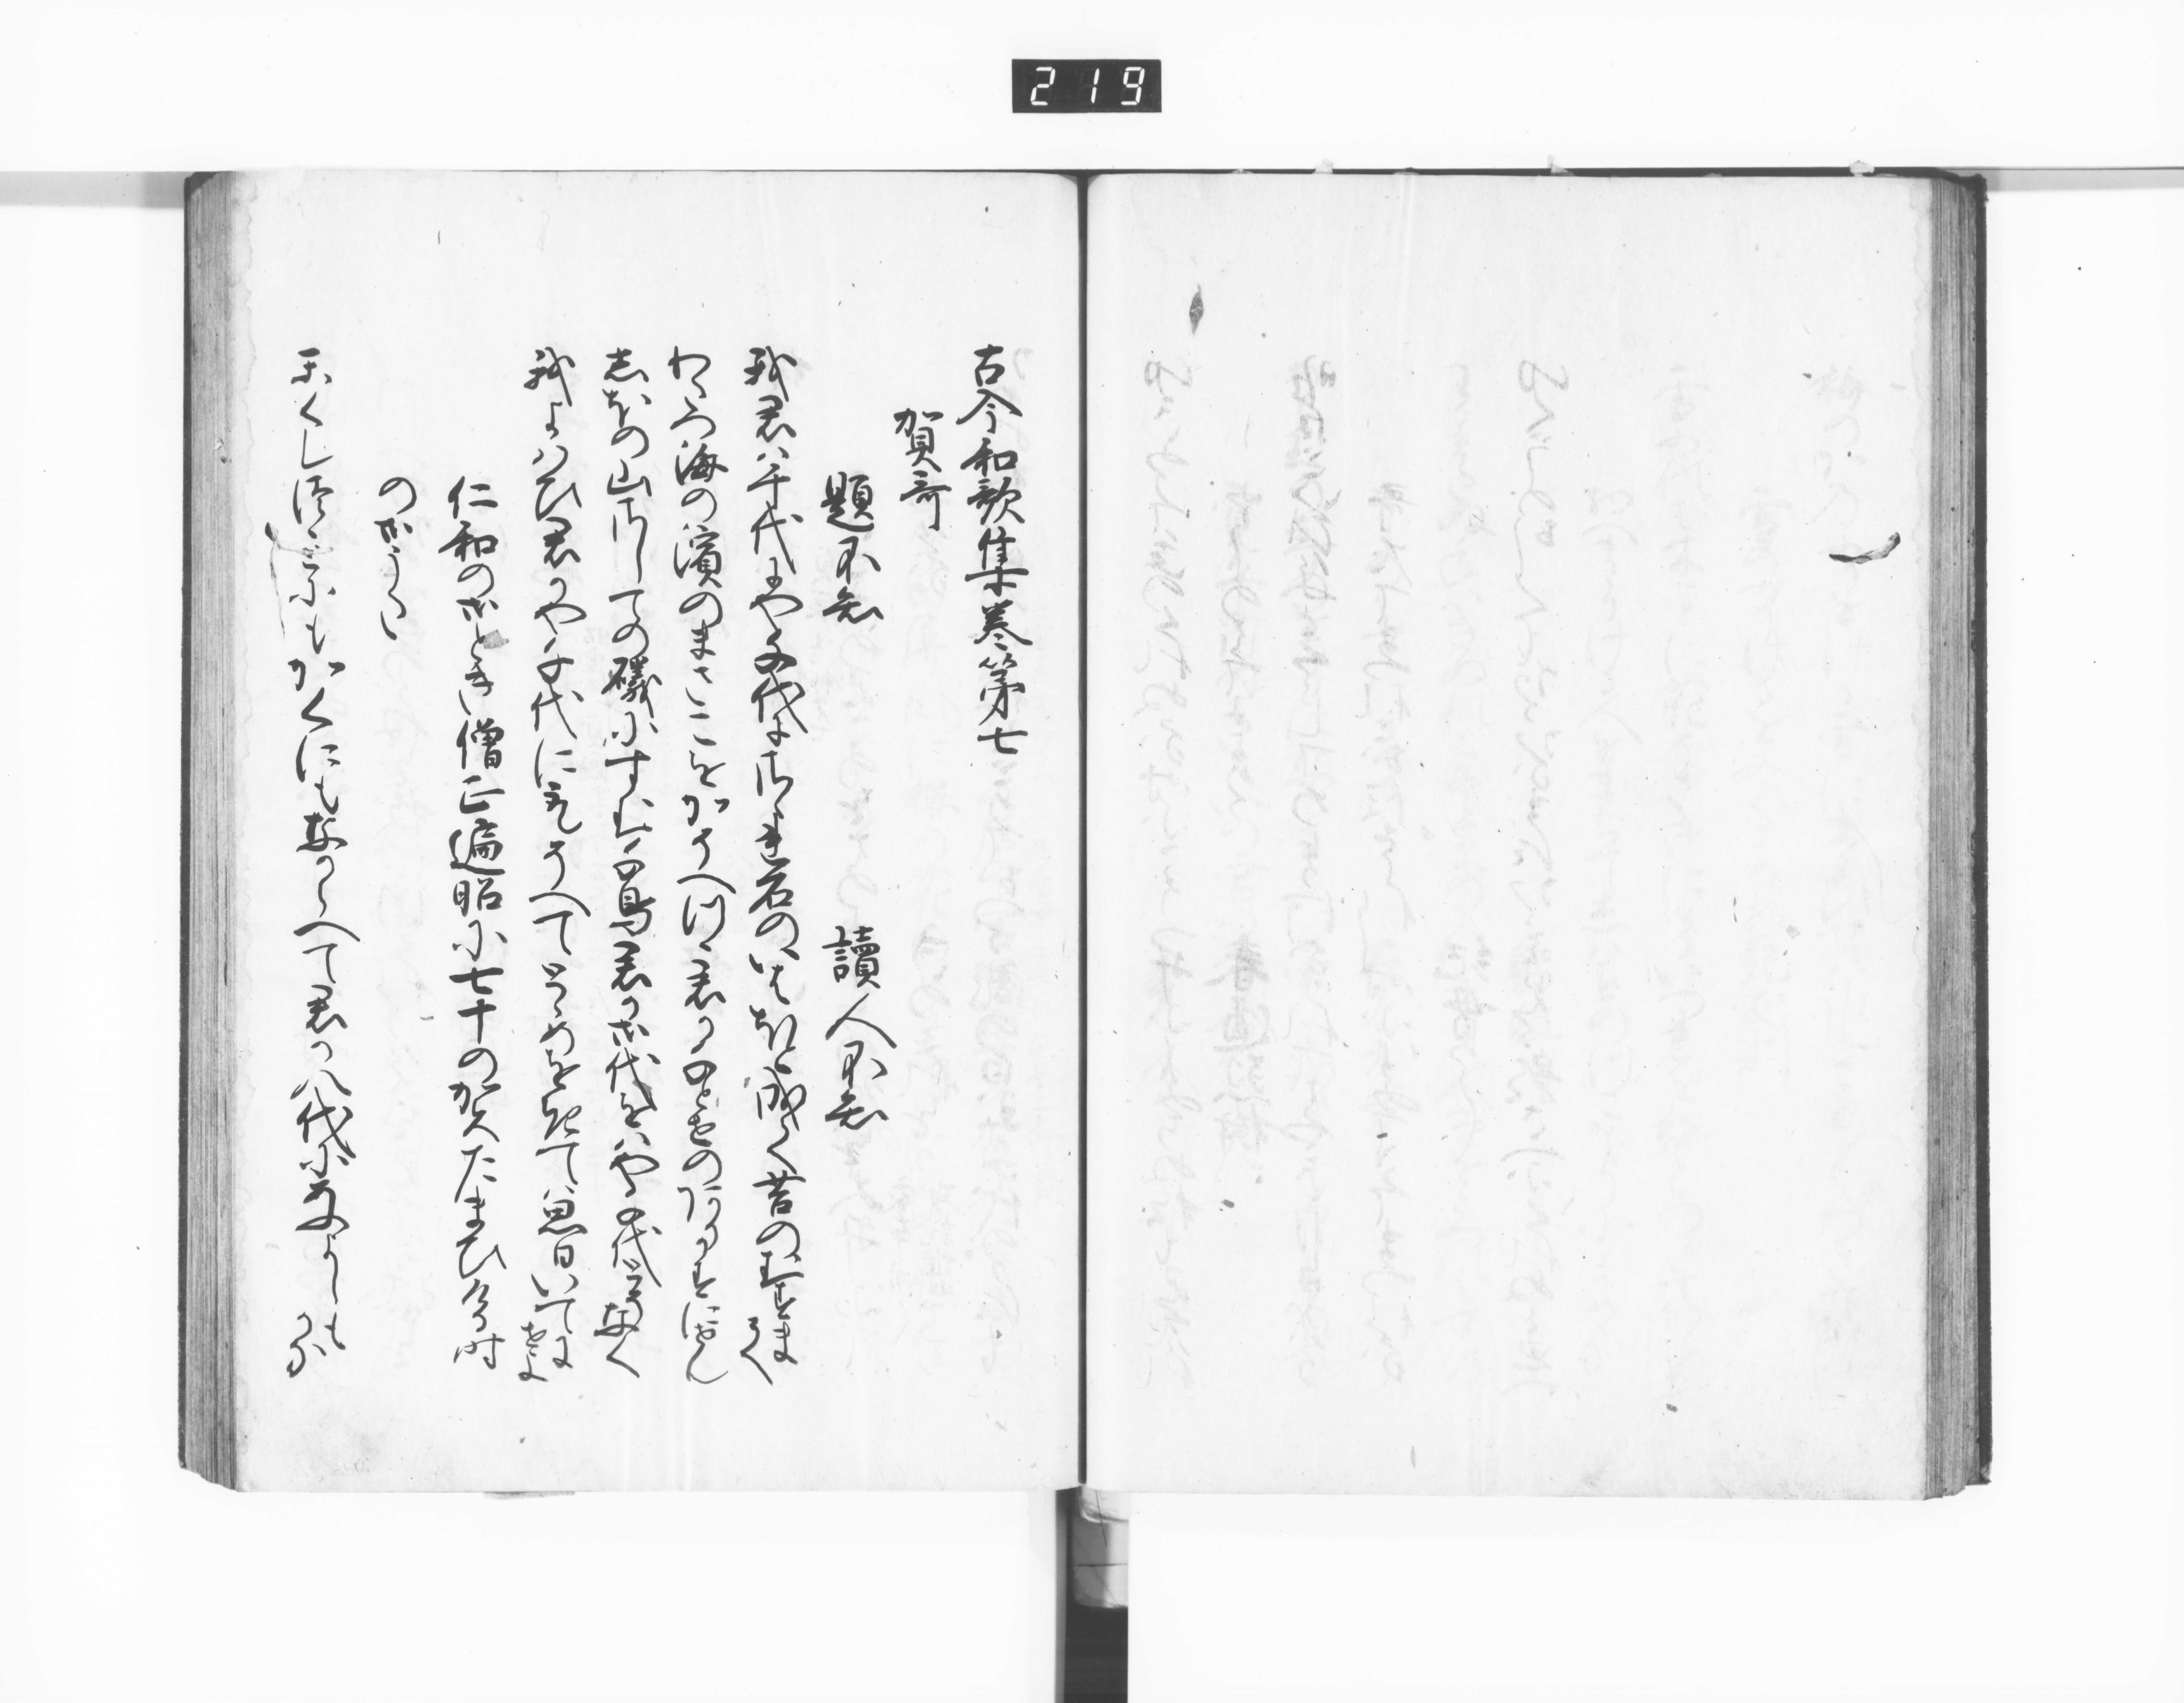 219
古今和歌集巻第七
賀哥
題不知 讀人不知
我君ハ千代にやちよにさゝれ石のいはほと成てこけのむすまて
わたつ海の濱のまさこをかそへつゝ君か千とせのありかすにせん
志ほの山さしての礒にすむ千鳥君か御代をハやちよとそ鳴く
我よハひ君かやち代にとりそへてとゝめをきて
仁和の御とき僧正遍昭に七十の賀たまひける時
の御うた
かくしつゝとにもかくにもなからへて君か八代にあふよしもかな